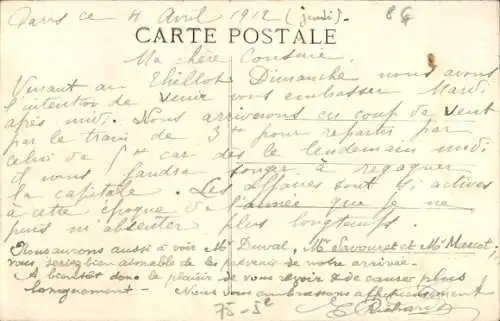 Paris ce 4 Avril 1912 (jeudi).
86
CARTE POSTALE
Ma chère Cousine.
Venant au Thillot Dimanche nous avons
l'intention de venir vous embrasser Mardi
après midi. Nous arriverons en coup de vent
par le train de 3 pour repartir par
celui de 5 car dès le lendemain midi
il nous faudra songer à regagner
la capitale. Les affaires sont si actives
à cette époque de l'année que je ne
puis m'absenter plus longtemps.
Nous aurons aussi à voir Mr Duval, Mr Savouret et Mr Marcot,
vous seriez bien aimable de les prévenir de notre arrivée.
A bientôt donc le plaisir de vous revoir & de causer plus
longuement - Nous vous embrassons affectueusement
75 - 5e